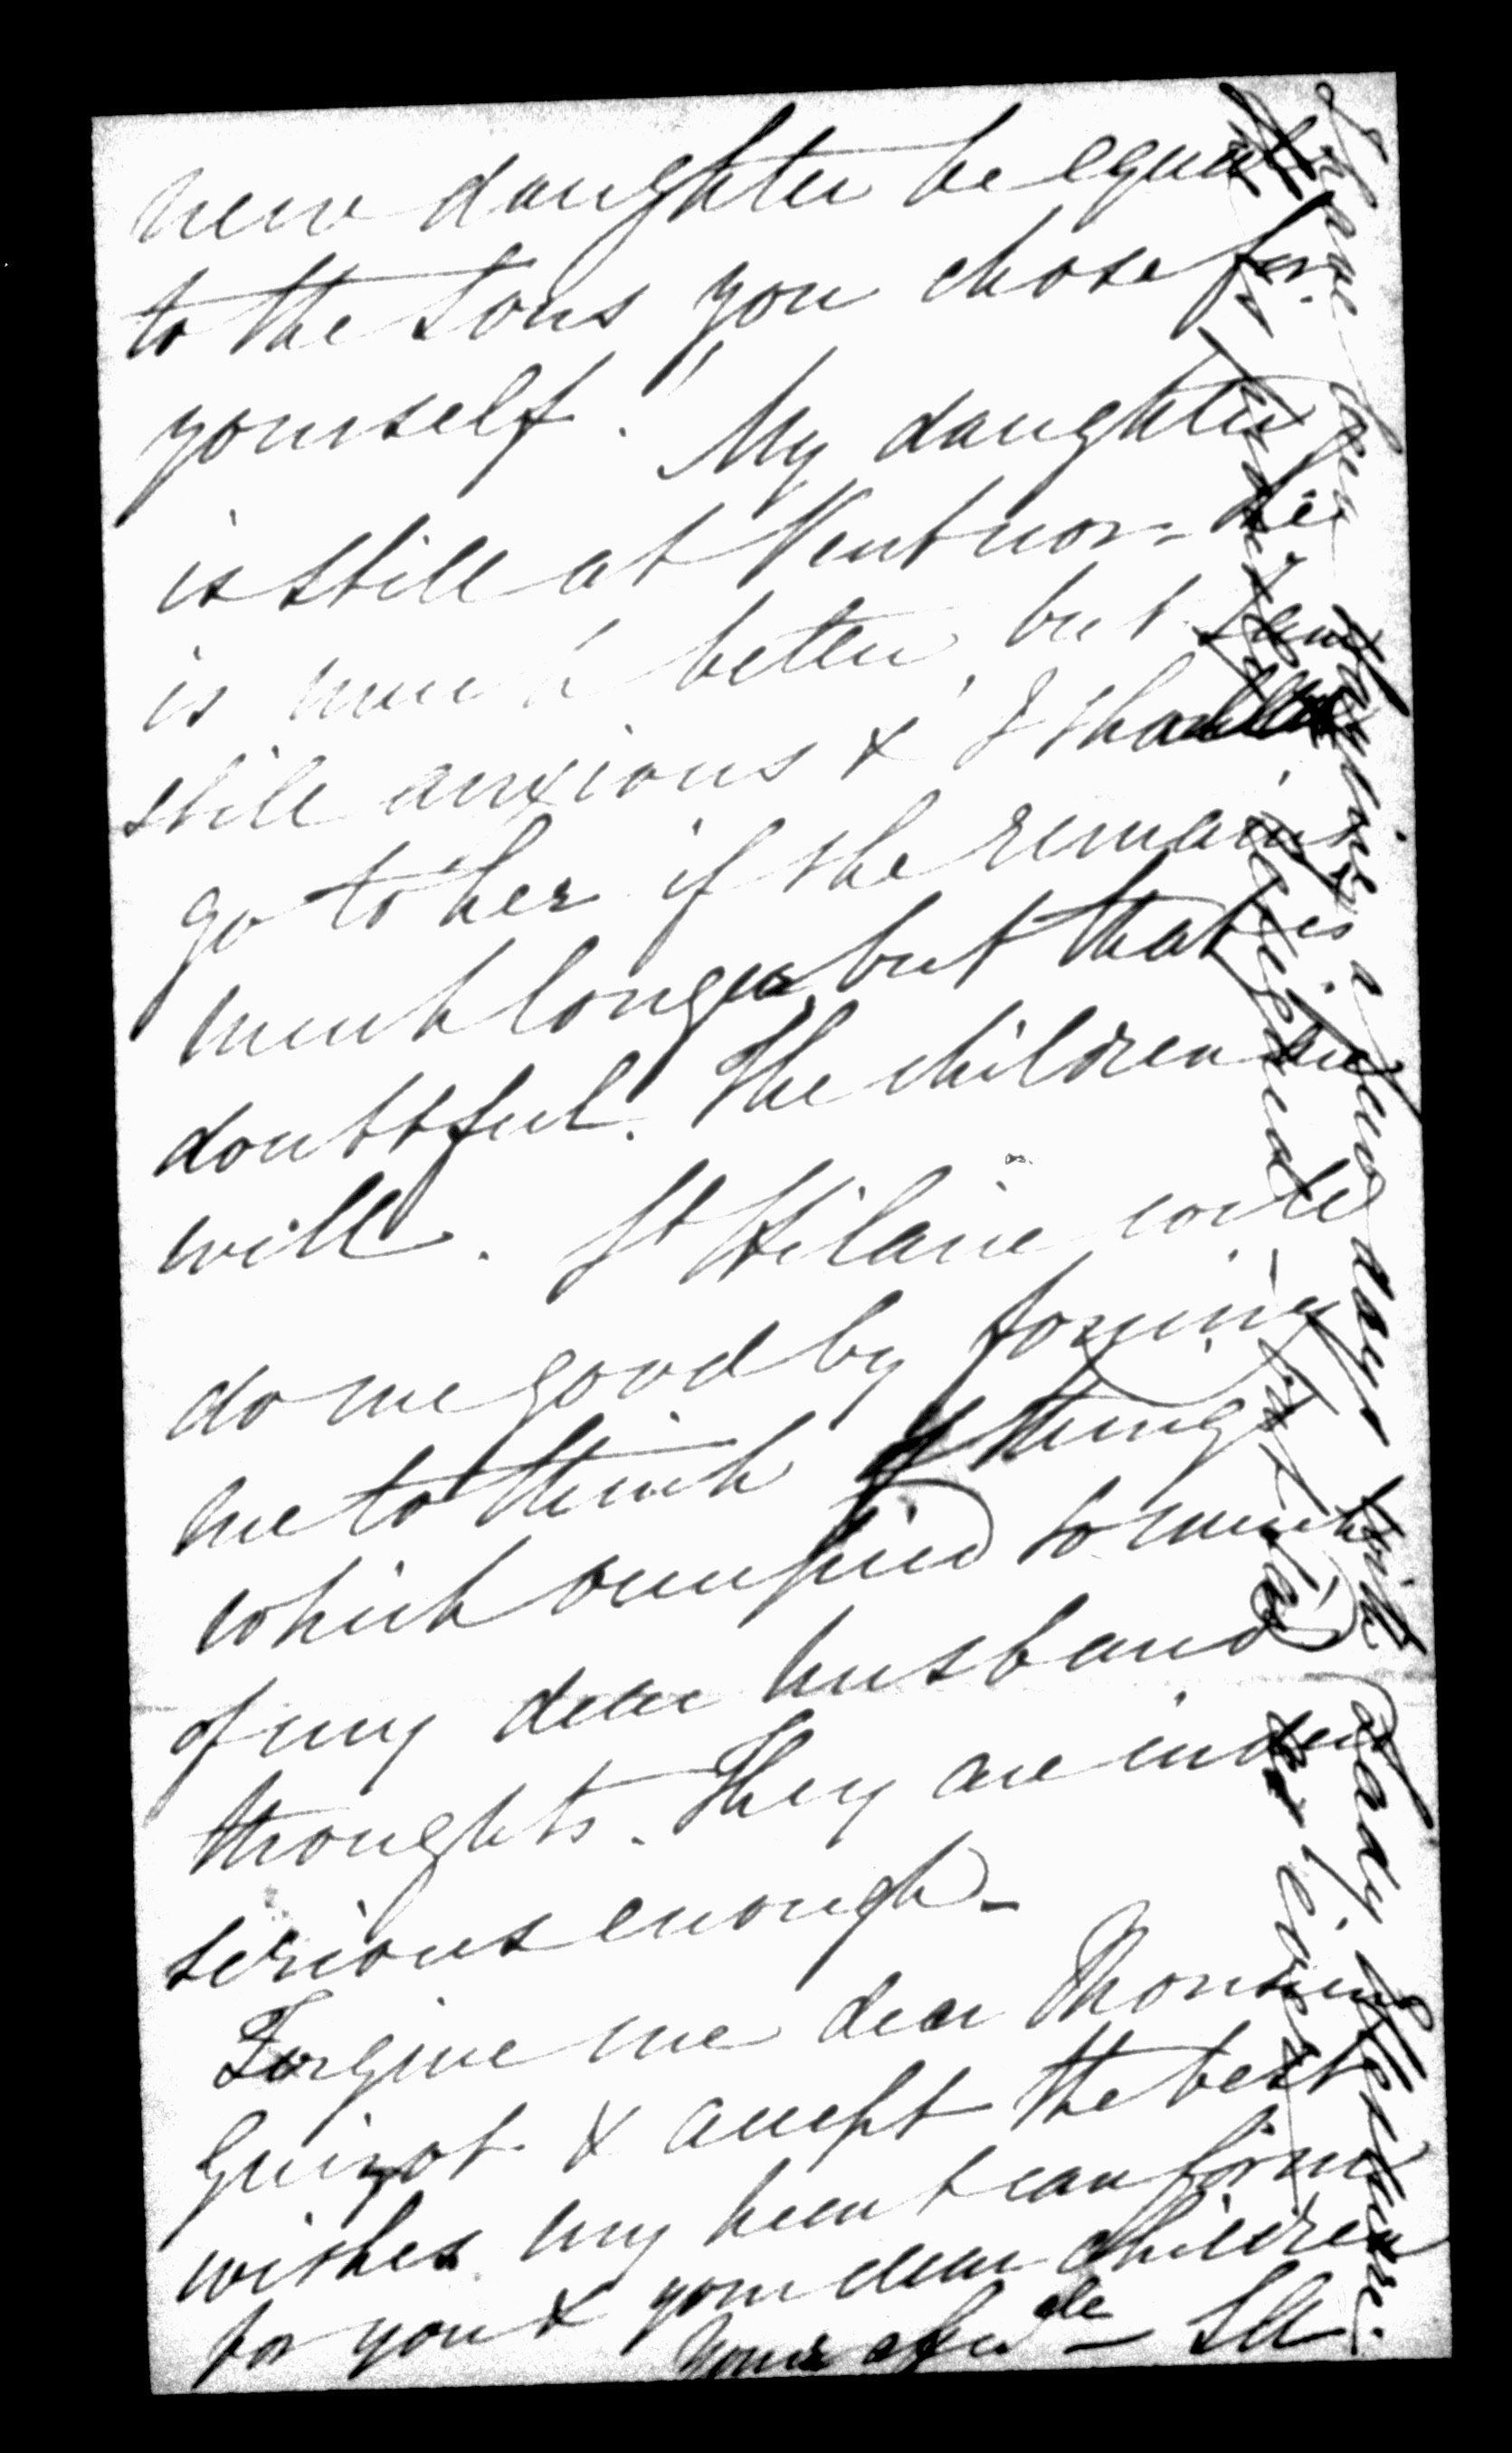 new daughter be equal
to the sons you chose for
yourself! My daughter
is still at Ventnor - she
is much better, but I am
still anxious & I shall
go to her if she remains
much longer, but that is
doubtful. The children are
will. St Hilaire will
do me good by forcing
me to think of things
which occupied so much
of my dear husband's
thoughts. They are indeed
serious enough -
Forgive me dear Monsieur
Guizot & accept the best
wishes my heart can form
for you & your dear children
Yours - LL
I have been staying a few days with Lady